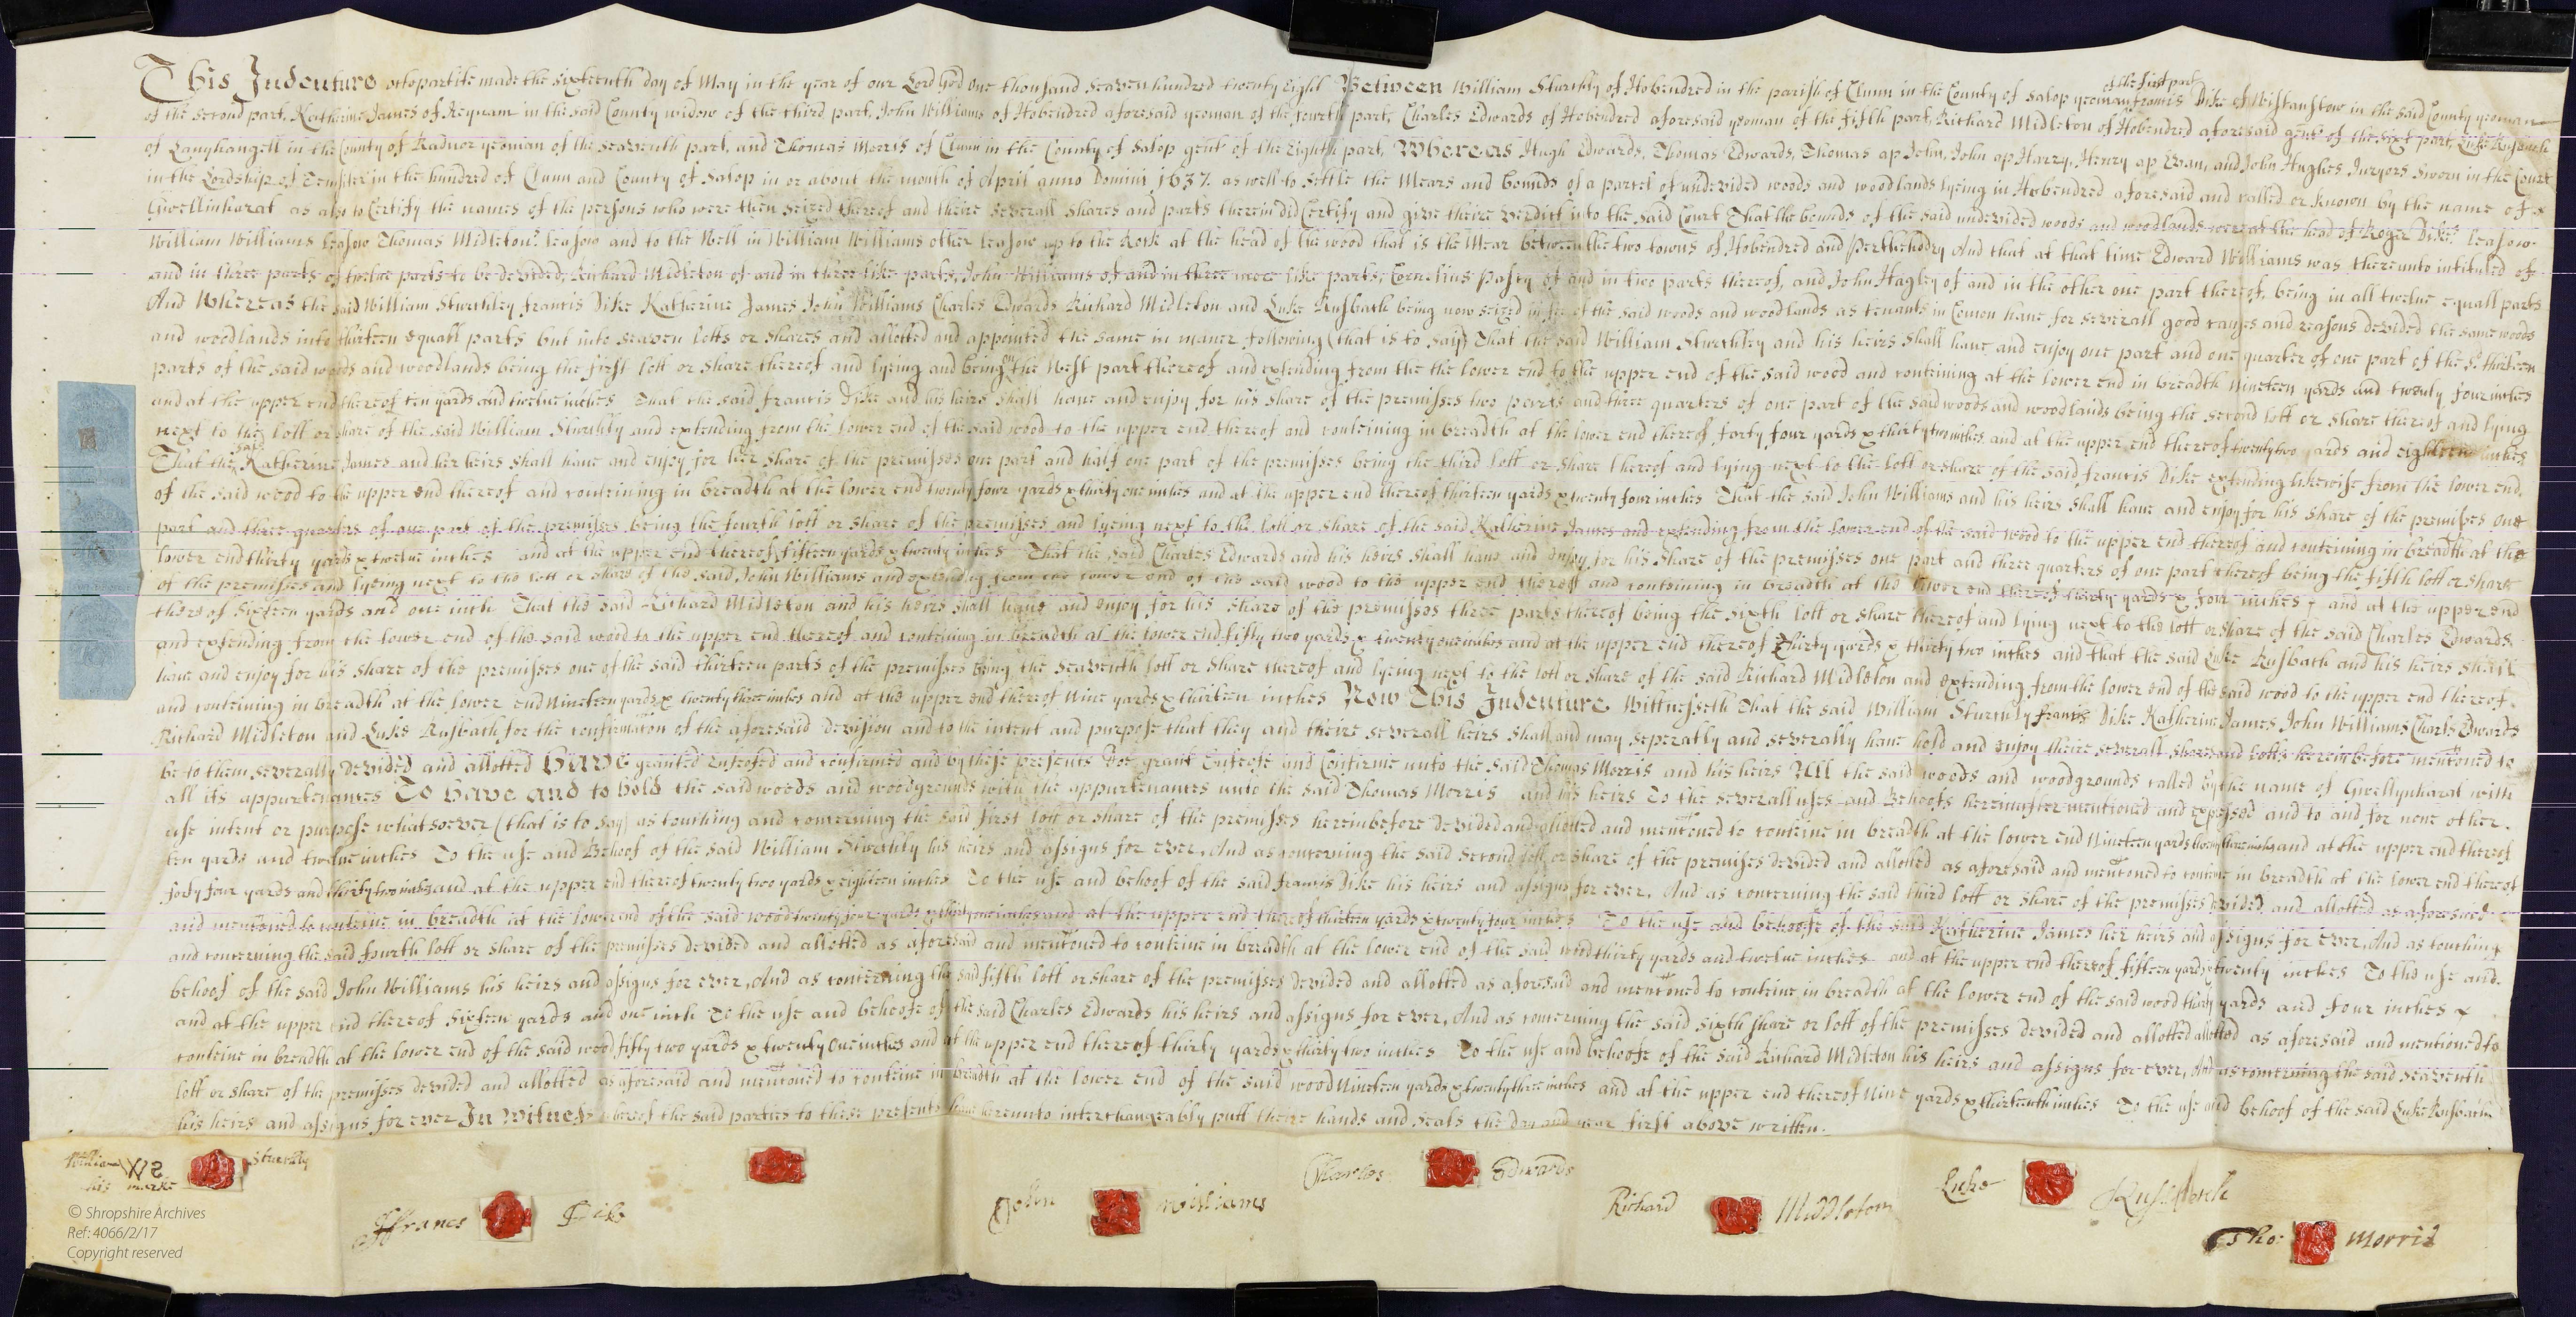 This Indenture octopartite made the sixteenth day of May in the year of our Lord God One thousand seaven hundred twenty eight Between William Sturkley of Hobendred in the parish of Clunn in the County of Salop yeoman of the first part, Francis Dike of Wistanstow in the said County yeoman
of the second part, Katherine James of in the said County widow of the third part, John Williams of Hobendred aforesaid yeoman of the fourth part, Charles Edwards of Hobendred aforesaid yeoman of the fifth part, Richard Midleton of Hobendred aforesaid gent of the sixt part, Luke
of Lanyhangell in the County of Radnor yeoman of the seaventh part, and Thomas Morris of Clunn in the County of Salop gent of the eighth part, Whereas Hugh Edwards, Thomas Edwards, Thomas ap John, John ap Harry, Henry ap Evan, and John Hughes Juryors sworn in the Court
in the Lordship of Tempseter in the hundred of Clunn and County of Salop in or about the month of April anno Domini 1637 as well to settle the Mears and bounds of a parcel of undevided woods and woodlands lyeing in Hobendred aforesaid and called or known by the name of
Gwellinharat as also to Certify the names of the persons who were then seized thereof and theire severall shares and parts therein did Certify and give theire verdict into the said Court That the bounds of the said undevided woods and woodlands were at the head of Roger Dikes leasow
William Williams leasow Thomas Midletons leasow and to the Well in William Williams other leasow up to the Rock at the head of the wood that is the Mear between the two towns of Hobendred and And that at that time Edward Williams was thereunto intituled of
and in three parts of twelve parts to be devided, Richard Midleton of and in three like parts, John Williams of and in three more like parts, Cornelius of and in two parts thereof, and John Hagley of and in the other one part thereof, being in all twelve equall parts
And Whereas the said William Sturkley Francis Dike Katherine James John Williams Charles Edwards Richard Midleton and Luke being now seized in fee of the said woods and woodlands as tenants in Comon have for severall good causes and reasons devided the same woods
and woodlands into thirteen equall parts but into seaven lotts or shares and allotted and appointed the same in maner following (that is to say) That the said William Sturkley and his heirs shall have and enjoy one part and one quarter of one part of the sd thirteen
parts of the said woods and woodlands being the first lott or share thereof and lyeing and being on the West part thereof and extending from the the lower end to the upper end of the said wood and conteining at the lower end in breadth Nineteen yards and twenty four inches
and at the upper end thereof ten yards and twelve inches That the said Francis Dike and his heirs shall have and enjoy for his share of the premisses two parts and three quarters of one part of the said woods and woodlands being the second lott or share thereof and lying
next to the lott or share of the said William Sturkley and extending from the lower end of the said wood to the upper end thereof and conteining in breadth at the lower end thereof forty four yards & thirty two inches and at the upper end thereof twenty two yards and eighteen inches
That the said Katherine James and her heirs shall have and enjoy for her share of the premisses one part and half one part of the premisses being the third lott or share thereof and lying next to the lott or share of the said Francis Dike extending likewise from the lower end
of the said wood to the upper end thereof and conteining in breadth at the lower end twenty four yards & thirty one inches and at the upper end thereof thirteen yards & twenty four inches That the said John Williams and his heirs shall have and enjoy for his share of the premisses one
part and three quarters of one part of the premisses being the fourth lott or share of the premisses and lyeing next to the lott or share of the said Katherine James and extending from the lower end of the said wood to the upper end thereof and conteining in breadth at the
lower end thirty yards & twelve inches and at the upper end thereof fifteen yards & twenty inches That the said Charles Edwards and his heirs shall have and enjoy for his share of the premisses one part and three quarters of one part thereof being the fifth lott or share
of the premisses and lyeing next to the lott or share of the said John Williams and extending from the lower end of the said wood to the upper end thereof and conteining in breadth at the lower end thereof thirty yards & four inches & and at the upper end
thereof sixteen yards and one inch That the said Richard Midleton and his heirs shall have and enjoy for his share of the premisses three parts thereof being the sixth lott or share thereof and lying next to the lott or share of the said Charles Edwards
and extending from the lower end of the said wood to the upper end thereof and conteining in breadth at the lower end fifty two yards & twenty one inches and at the upper end thereof thirty yards & thirty two inches and that the said Luke and his heirs shall
have and enjoy for his share of the premisses one of the said thirteen parts of the premisses being the seaventh lott or share thereof and lyeing next to the lott or share of the said Richard Midleton and extending from the lower end of the said wood to the upper end thereof
and conteining in breadth at the lower end Nineteen yards & twenty three inches and at the upper end thereof Nine yards & thirteen inches Now This Indenture Wittnesseth That the said William Sturkley Francis Dike Katherine James John Williams Charles Edwards
Richard Midleton and Luke for the confirmation of the aforesaid devision and to the intent and purpose that they and theire severall heirs shall and may seperatly and severally have hold and enjoy theire severall shares and lotts hereinbefore mentoned to
be to them severally devided and allotted Have granted enfeofed and confirmed and by these presents Doe grant Enfeofe and Confirme unto the said Thomas Morris and his heirs All the said woods and woodgrounds called by the name of Gwellynharat with
all its appurtenances To have and to hold the said woods and woodgrounds with the appurtenances unto the said Thomas Morris and his heirs To the severall uses and Behoofs hereinafter mentioned and expressed and to and for none other
use intent or purpose whatsoever (that is to say) as touching and concerning the said first lott or share of the premisses hereinbefore devided and allotted and mentoned to conteine in breadth at the lower end Nineteen yards twenty inches and at the upper end thereof
ten yards and twelve inches To the use and Behoof of the said William Sturkley his heirs and assigns for ever, And as concerning the said second lott or share of the premisses devided and allotted as aforesaid and mentoned to conteine in breadth at the lower end thereof
forty four yards and thirty two inches and at the upper end thereof twenty two yards & eighteen inches To the use and behoof of the said Francis Dike his heirs and assigns for ever, And as concerning the said third lott or share of the premisses devided and allotted as aforesaid
and mentoned to conteine in breadth at the lower end of the said wood twenty four yards & thirty one inches and at the upper end thereof thirteen yards & twenty four inches To the use and behoofe of the said Katherine James her heirs and assigns for ever, And as touching
and concerning the said fourth lott or share of the premisses devided and allotted as aforesaid and mentoned to conteine in breadth at the lower end of the said wood thirty yards and twelve inches and at the upper end thereof fifteen yards & twenty inches To the use and
behoof of the said John Williams his heirs and assigns for ever, And as concerning the said fifth lott or share of the premisses devided and allotted as aforesaid and mentoned to conteine in breadth at the lower end of the said wood thirty yards and four inches &
and at the upper end thereof sixteen yards and one inch To the use and behoofe of the said Charles Edwards his heirs and assigns for ever, And as concerning the said sixth share or lott of the premisses devided and allotted allotted as aforesaid and mentioned to
conteine in breadth at the lower end of the said wood fifty two yards & twenty one inches and at the upper end thereof thirty yards & thirty two inches To the use and behoofe of the said Richard Midleton his heirs and assigns for ever, And as concerning the said seaventh
lott or share of the premisses devided and allotted as aforesaid and mentoned to conteine in breadth at the lower end of the said wood Nineteen yards & twenty three inches and at the upper end thereof Nine yards & thirteenth inches To the use and behoof of the said Luke
his heirs and assigns for ever In Witness whereof the said parties to these presents have hereunto interchangeably putt theire hands and seals the day and year first above written.
William WS Sturkley
his marke
Ffrances Dike
John Williams
Charles Edwards
Richard Middleton
Luke
Tho: Morris
© Shropshire Archives
Ref: 4066/2/17
Copyright reserved